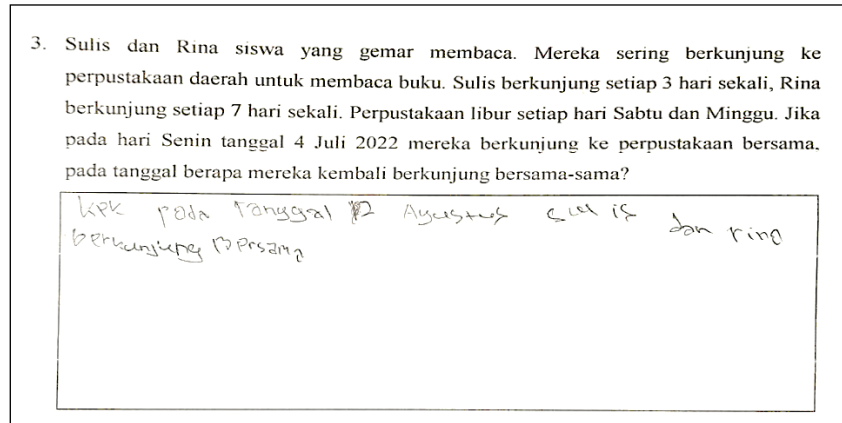 3. Sulis dan Rina siswa yang gemar membaca. Mereka sering berkunjung ke
perpustakaan daerah untuk membaca buku. Sulis berkunjung setiap 3 hari sekali, Rina
berkunjung setiap 7 hari sekali. Perpustakaan libur setiap hari Sabtu dan Minggu. Jika
pada hari Senin tanggal 4 Juli 2022 mereka berkunjung ke perpustakaan bersama,
pada tanggal berapa mereka kembali berkunjung bersama-sama?
KPK pada tanggal Agustus sulis dan rina
berkunjung Bersama